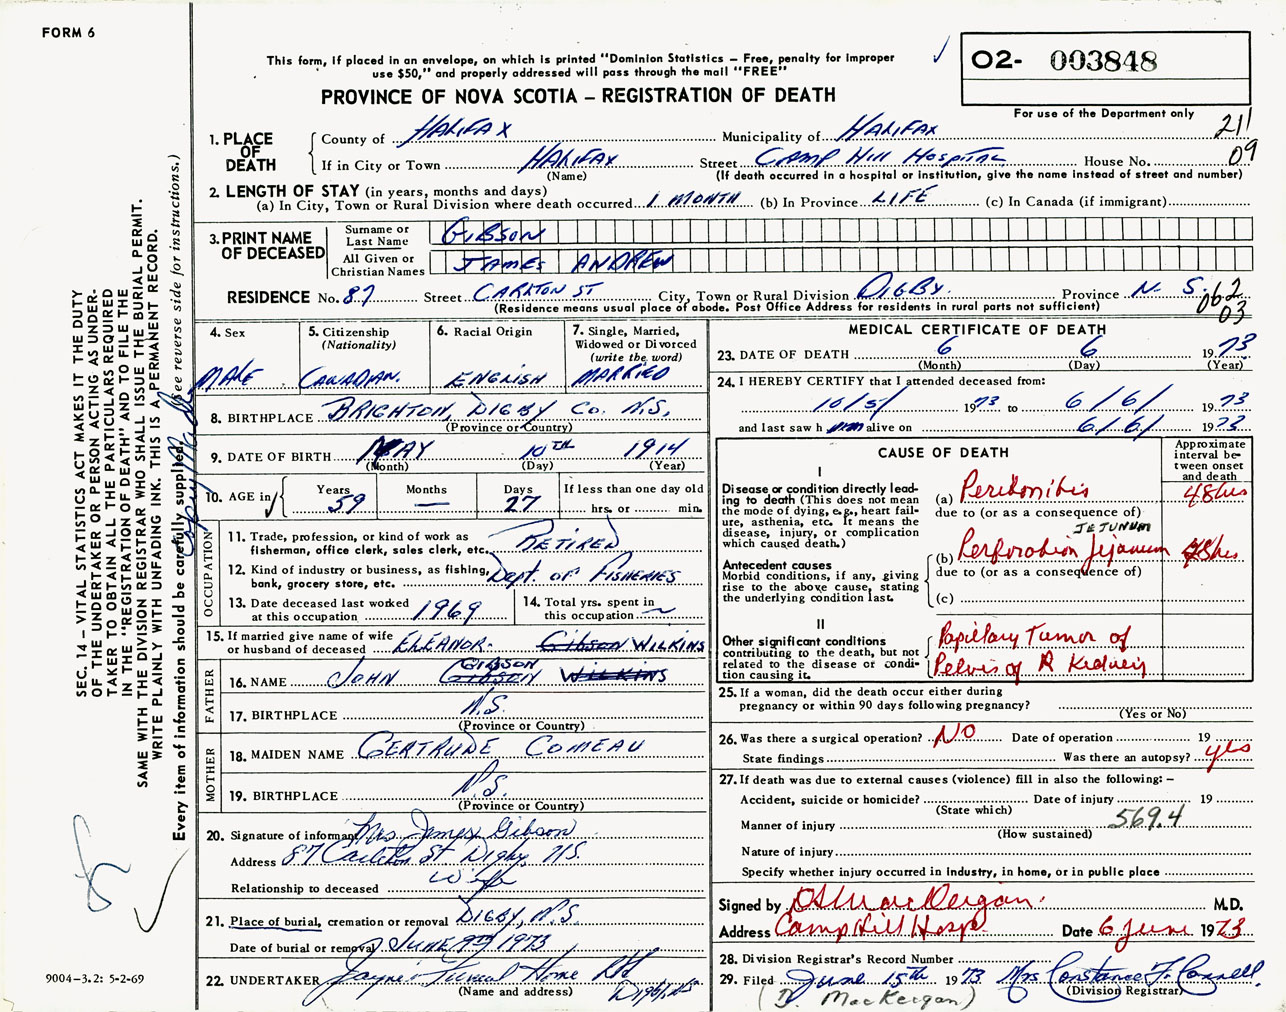 FORM 6
This form, if placed in an envelope, on which is printed "Dominion Statistics – Free, penalty for improper
use $50," and properly addressed will pass through the mail "FREE"
PROVINCE OF NOVA SCOTIA – REGISTRATION OF DEATH
02- 003848
For use of the Department only
211
09
1. PLACE OF DEATH
County of HALIFAX Municipality of HALIFAX
If in City or Town HALIFAX Street CAMP HILL HOSPITAL House No.
(Name) (If death occurred in a hospital or institution, give the name instead of street and number)
2. LENGTH OF STAY (in years, months and days)
(a) In City, Town or Rural Division where death occurred 1 MONTH (b) In Province LIFE (c) In Canada (if immigrant)
3. PRINT NAME OF DECEASED
Surname or Last Name GIBSON
All Given or Christian Names JAMES ANDREW
RESIDENCE No. 87 Street CARLTON ST City, Town or Rural Division DIGBY Province N. S.
(Residence means usual place of abode. Post Office Address for residents in rural parts not sufficient)
062
03
4. Sex MALE
5. Citizenship (Nationality) CANADIAN.
6. Racial Origin ENGLISH
7. Single, Married, Widowed or Divorced (write the word) MARRIED
8. BIRTHPLACE BRIGHTON, DIGBY Co. N.S.
(Province or Country)
9. DATE OF BIRTH MAY 10TH 1914
(Month) (Day) (Year)
10. AGE in Years 59 Months — Days 27 If less than one day old hrs. or min.
OCCUPATION
11. Trade, profession, or kind of work as fisherman, office clerk, sales clerk, etc. RETIRED
12. Kind of industry or business, as fishing, bank, grocery store, etc. Dept. OF FISHERIES
13. Date deceased last worked at this occupation 1969
14. Total yrs. spent in this occupation ~
15. If married give name of wife or husband of deceased ELEANOR. Gibson WILKINS
FATHER
16. NAME JOHN GIBSON GIBSON WILKINS
17. BIRTHPLACE N.S.
(Province or Country)
MOTHER
18. MAIDEN NAME GERTRUDE COMEAU
19. BIRTHPLACE N.S.
(Province or Country)
20. Signature of informant Mrs. James Gibson
Address 87 Carleton St Digby, N.S.
Relationship to deceased Wife
21. Place of burial, cremation or removal DIGBY, N.S.
Date of burial or removal JUNE 9TH 1973
22. UNDERTAKER Jayne's Funeral Home Ltd Digby, NS
(Name and address)
MEDICAL CERTIFICATE OF DEATH
23. DATE OF DEATH 6 6 1973
(Month) (Day) (Year)
24. I HEREBY CERTIFY that I attended deceased from:
10/5/ 1973 to 6/6/ 1973
and last saw h im alive on 6/6/ 1973
CAUSE OF DEATH
Approximate interval between onset and death
I
Disease or condition directly leading to death (This does not mean the mode of dying, e.g., heart failure, asthenia, etc. It means the disease, injury, or complication which caused death.)
(a) Peritonitis 48hrs
due to (or as a consequence of)
JEJUNUM
Antecedent causes
Morbid conditions, if any, giving rise to the above cause, stating the underlying condition last.
(b) Perforation Jejunum 48hrs
due to (or as a consequence of)
(c)
II
Other significant conditions contributing to the death, but not related to the disease or condition causing it.
Papillary Tumor of
Pelvis of R Kidney
25. If a woman, did the death occur either during pregnancy or within 90 days following pregnancy?
(Yes or No)
26. Was there a surgical operation? NO Date of operation 19
State findings Was there an autopsy? yes
27. If death was due to external causes (violence) fill in also the following: –
Accident, suicide or homicide? Date of injury 19
(State which)
Manner of injury 569.4
(How sustained)
Nature of injury
Specify whether injury occurred in industry, in home, or in public place
Signed by D S MacKeigan. M.D.
Address Camp Hill Hosp Date 6 June 1973
28. Division Registrar's Record Number
29. Filed June 15th 1973 Mrs Constance F. Connell
(Division Registrar)
(D. MacKeigan)
SEC. 14 – VITAL STATISTICS ACT MAKES IT THE DUTY
OF THE UNDERTAKER OR PERSON ACTING AS UNDER-
TAKER TO OBTAIN ALL THE PARTICULARS REQUIRED
IN THE "REGISTRATION OF DEATH" AND TO FILE THE
SAME WITH THE DIVISION REGISTRAR WHO SHALL ISSUE THE BURIAL PERMIT.
WRITE PLAINLY WITH UNFADING INK. THIS IS A PERMANENT RECORD.
Every item of information should be carefully supplied. (See reverse side for instructions.)
9004–3.2: 5-2-69